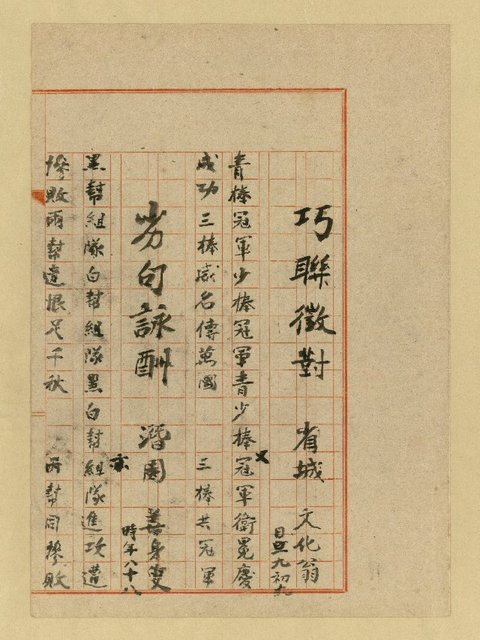 巧聯徵對 省城 文化翁
九初九
青棒冠軍少棒冠軍青少棒冠軍衛冕慶
又
成功三棒威名傳萬國 三棒共冠軍
劣句詠酬 潛園 善身叟
時年八十八
黑幫組隊白幫組隊黑白幫組隊進攻遭
亦
慘敗兩幫遺恨足千秋 兩幫同慘敗